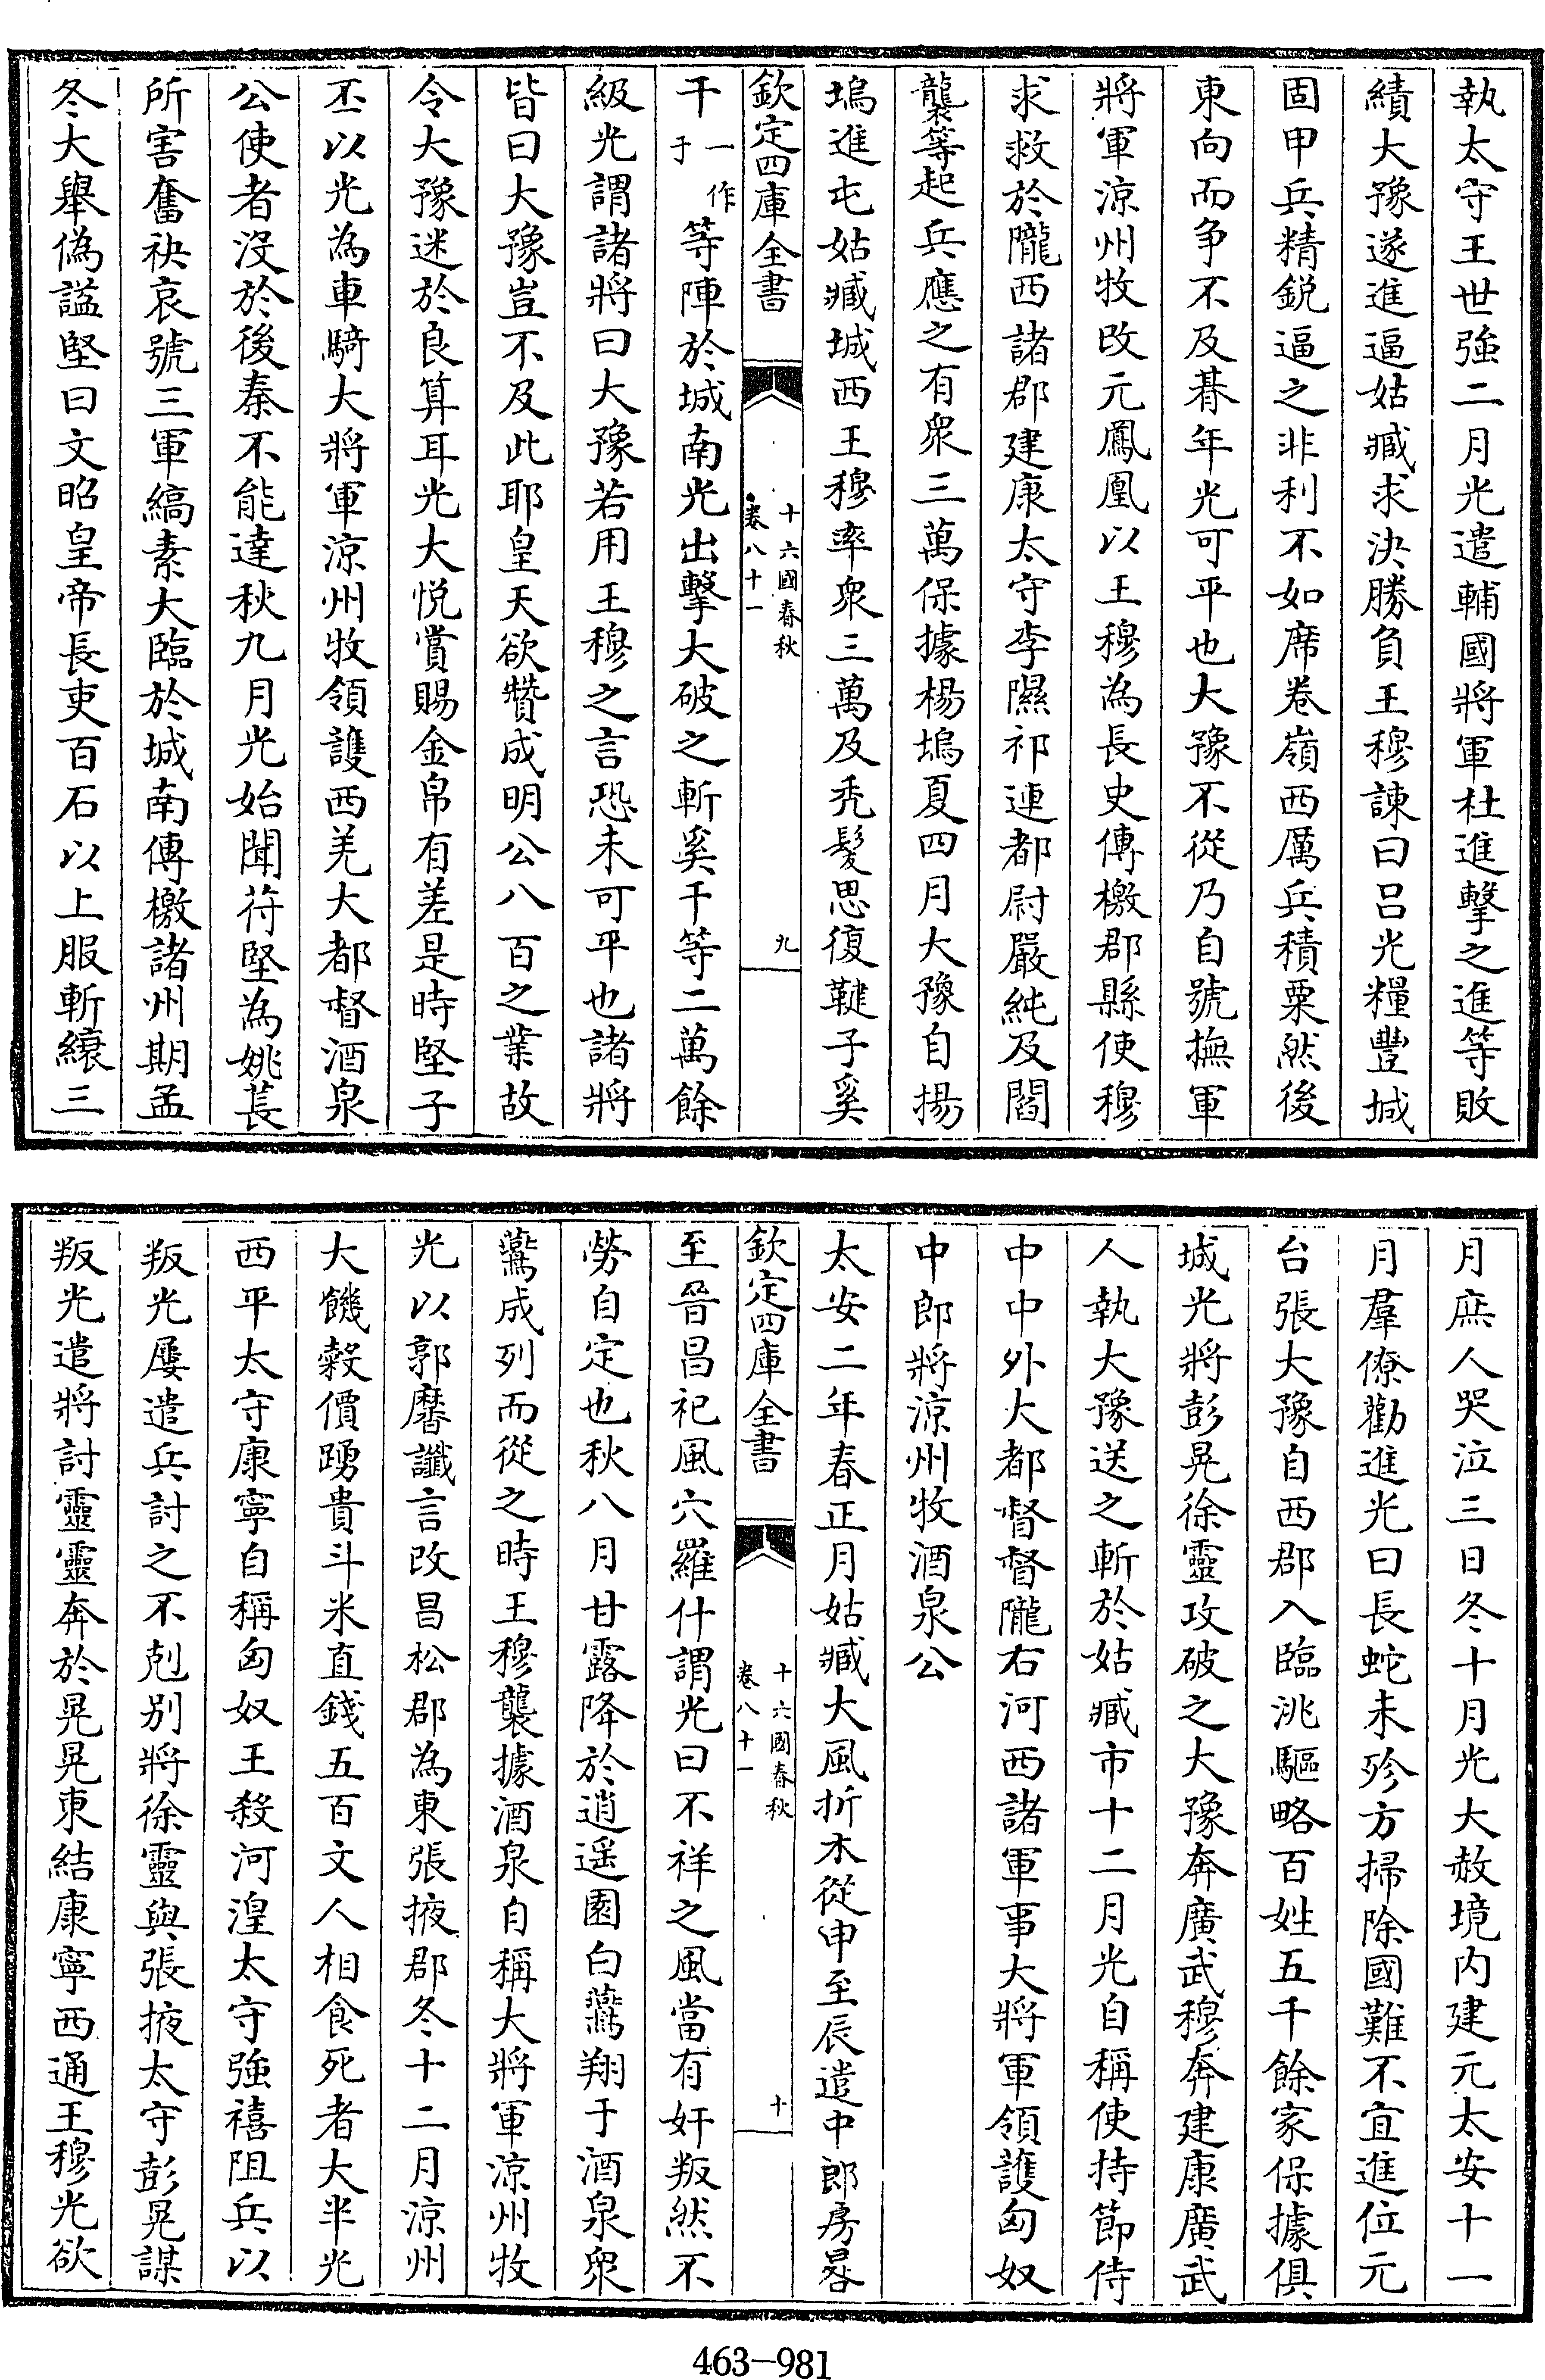 執太守王世強二月光遣輔國將軍杜進擊之進等敗
績大豫遂進逼姑臧求決勝負王穆諫曰吕光糧豐城
固甲兵精鋭逼之非利不如席卷嶺西厲兵積粟然後
東向而争不及朞年光可平也大豫不從乃自號撫軍
將軍涼州牧改元鳳凰以王穆為長史傳檄郡縣使穆
求救於隴西諸郡建康太守李隰祁連都尉嚴純及閻
襲等起兵應之有衆三萬保據楊塢夏四月大豫自揚
塢進屯姑臧城西王穆率衆三萬及秃髮思復鞬子奚
欽定四庫全書
十六國春秋
卷八十一
九
干一作于等陣於城南光出擊大破之斬奚干等二萬餘
級光謂諸將曰大豫若用王穆之言恐未可平也諸將
皆曰大豫豈不及此耶皇天欲贊成明公八百之業故
令大豫迷於良算耳光大悦賞賜金帛有差是時堅子
丕以光為車騎大將軍涼州牧領護西羌大都督酒泉
公使者沒於後秦不能達秋九月光始聞苻堅為姚萇
所害奮袂哀號三軍縞素大臨於城南傳檄諸州期孟
冬大舉偽謚堅曰文昭皇帝長吏百石以上服斬縗三
月庶人哭泣三日冬十月光大赦境内建元太安十一
月羣僚勸進光曰長蛇未殄方掃除國難不宜進位元
台張大豫自西郡入臨洮驅略百姓五千餘家保據俱
城光將彭晃徐靈攻破之大豫奔廣武穆奔建康廣武
人執大豫送之斬於姑臧市十二月光自稱使持節侍
中中外大都督督隴右河西諸軍事大將軍領護匈奴
中郎將涼州牧酒泉公
太安二年春正月姑臧大風折木從申至辰遣中郎房晷
欽定四庫全書
十六國春秋
卷八十一
十
至晉昌祀風穴羅什謂光曰不祥之風當有奸叛然不
勞自定也秋八月甘露降於逍遥園白鷰翔于酒泉衆
鷰成列而從之時王穆襲據酒泉自稱大將軍涼州牧
光以郭黁讖言改昌松郡為東張掖郡冬十二月涼州
大饑榖價踴貴斗米直錢五百文人相食死者大半光
西平太守康寧自稱匈奴王殺河湟太守強禧阻兵以
叛光屢遣兵討之不剋别將徐靈與張掖太守彭晃謀
叛光遣將討靈靈奔於晃晃東結康寧西通王穆光欲
463-981